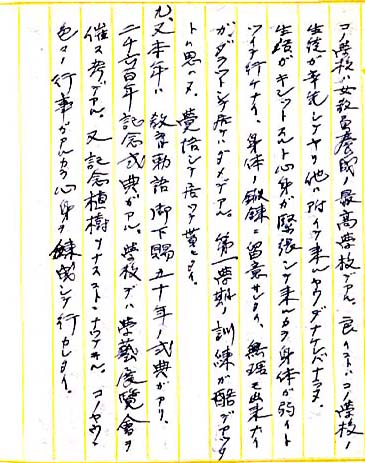 コノ學校ハ女教員養成ノ最高學校デアル。良イコトハコノ學校ノ
生徒ガ率先シテヤリ他ハ附イテ来ルヤウダナケレバナラヌ。
生徒ガキシットスルト心身ガ緊張シテ来ルカラ身体ガ弱イト
ツイテ行ケナイ、身体ノ鍛錬ニ留意サレタイ。無理モ出来ナイ
ガ 居テハダメデアル。第一學期ノ訓練ガ酷デアッタ
トハ思ハヌ。覚悟シテ居ッテ貰ヒタイ。
九、又本年ハ教育勅語御下賜五十年ノ式典ガアリ、
二千六百年記念式典ガアル。學校デハ學藝展覧會ヲ
催ス考デアル。又記念植樹ヲナスコトニナッテヰル。コノヤウナ
色々ノ行事ガアルカラ心身ヲ錬成シテ行カレタイ。